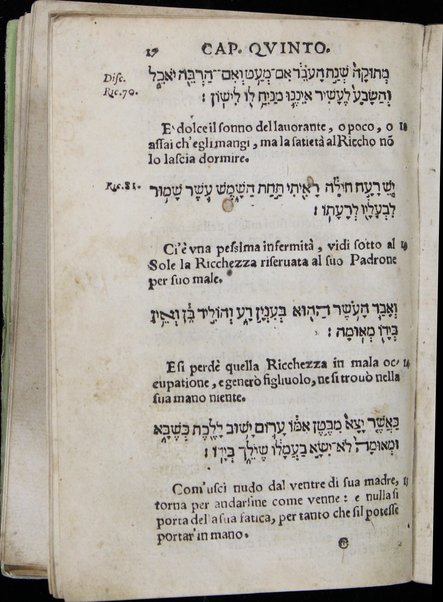 17 CAP. QVINTO.
Disc. מְתוּקָה שְׁנַת הָעֹבֵד אִם־מְעַט וְאִם־הַרְבֵּה יֹאכֵל
Ric.70. וְהַשָּׂבָע לֶעָשִׁיר אֵינֶנּוּ מַנִּיחַ לוֹ לִישׁוֹן׃
E dolce il sonno del lauorante, o poco, o
assai ch'egli mangi, ma la satietà al Riccho nō
lo lascia dormire.
Ric.81. יֵשׁ רָעָה חוֹלָה רָאִיתִי תַּחַת הַשָּׁמֶשׁ עֹשֶׁר שָׁמוּר
לִבְעָלָיו לְרָעָתוֹ׃
Ci'è vna pessima infermità, vidi sotto al
Sole la Ricchezza riseruata al suo Padrone
per suo male.
וְאָבַד הָעֹשֶׁר הַהוּא בְּעִנְיַן רָע וְהוֹלִיד בֵּן וְאֵין
בְּיָדוֹ מְאוּמָה׃
E si perdè quella Ricchezza in mala oc
cupatione, e generò figliuolo, ne si trouò nella
sua mano niente.
כַּאֲשֶׁר יָצָא מִבֶּטֶן אִמּוֹ עָרוֹם יָשׁוּב לָלֶכֶת כְּשֶׁבָּא
וּמְאוּמָה לֹא־יִשָּׂא בַעֲמָלוֹ שֶׁיֹּלֵךְ בְּיָדוֹ׃
Com'usci nudo dal ventre di sua madre,
torna per andarsine come venne: e nulla si
porta del a sua fatica, per tanto che sil potesse
portar'in mano.